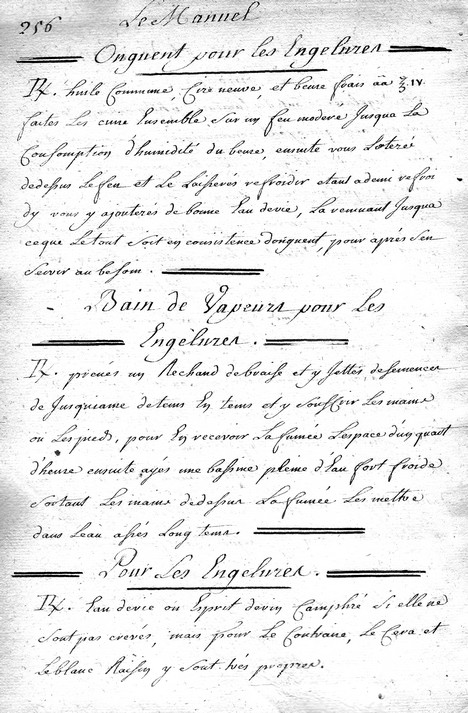 256
Le Manuel
Onguent pour les Engelures
℞. huile Commune, Cire neuve, et beure frais aa ℥ IV.
faites Les cuire Ensemble Sur un feu moderé Jusqua La
Consomption d'humidité du beure, ensuite vous L'oterés
dedessus Lefeu et Le Laisserés refroidir etant ademi refroi
dy vous y ajouterés de bonne Eau devie, La remuant Jusqua
ceque Letout Soit en consistence donguent, pour aprés Sen
Servir au besoin.
Bain de Vapeurs pour les
Engelures.
℞. prenés un Rechaud debraise et y Jettés desemences
de Jusquiame detems En tems et y Souffrir Les mains
ou Lespieds, pour En recevoir Lafumée Lespace d'un quart
d'heure ensuite ayés une bassine pleine d'Eau fort froide
Sortant Les mains dedessus La fumée Les mettre
dans Leau assés Long tems.
Pour Les Engelures.
℞. Eau devie ou Esprit devin Camphré Si elle ne
Sont pas crevés, mais pour Le Contraire, Le Cera et
Leblanc Raisin y Sont trés propres.